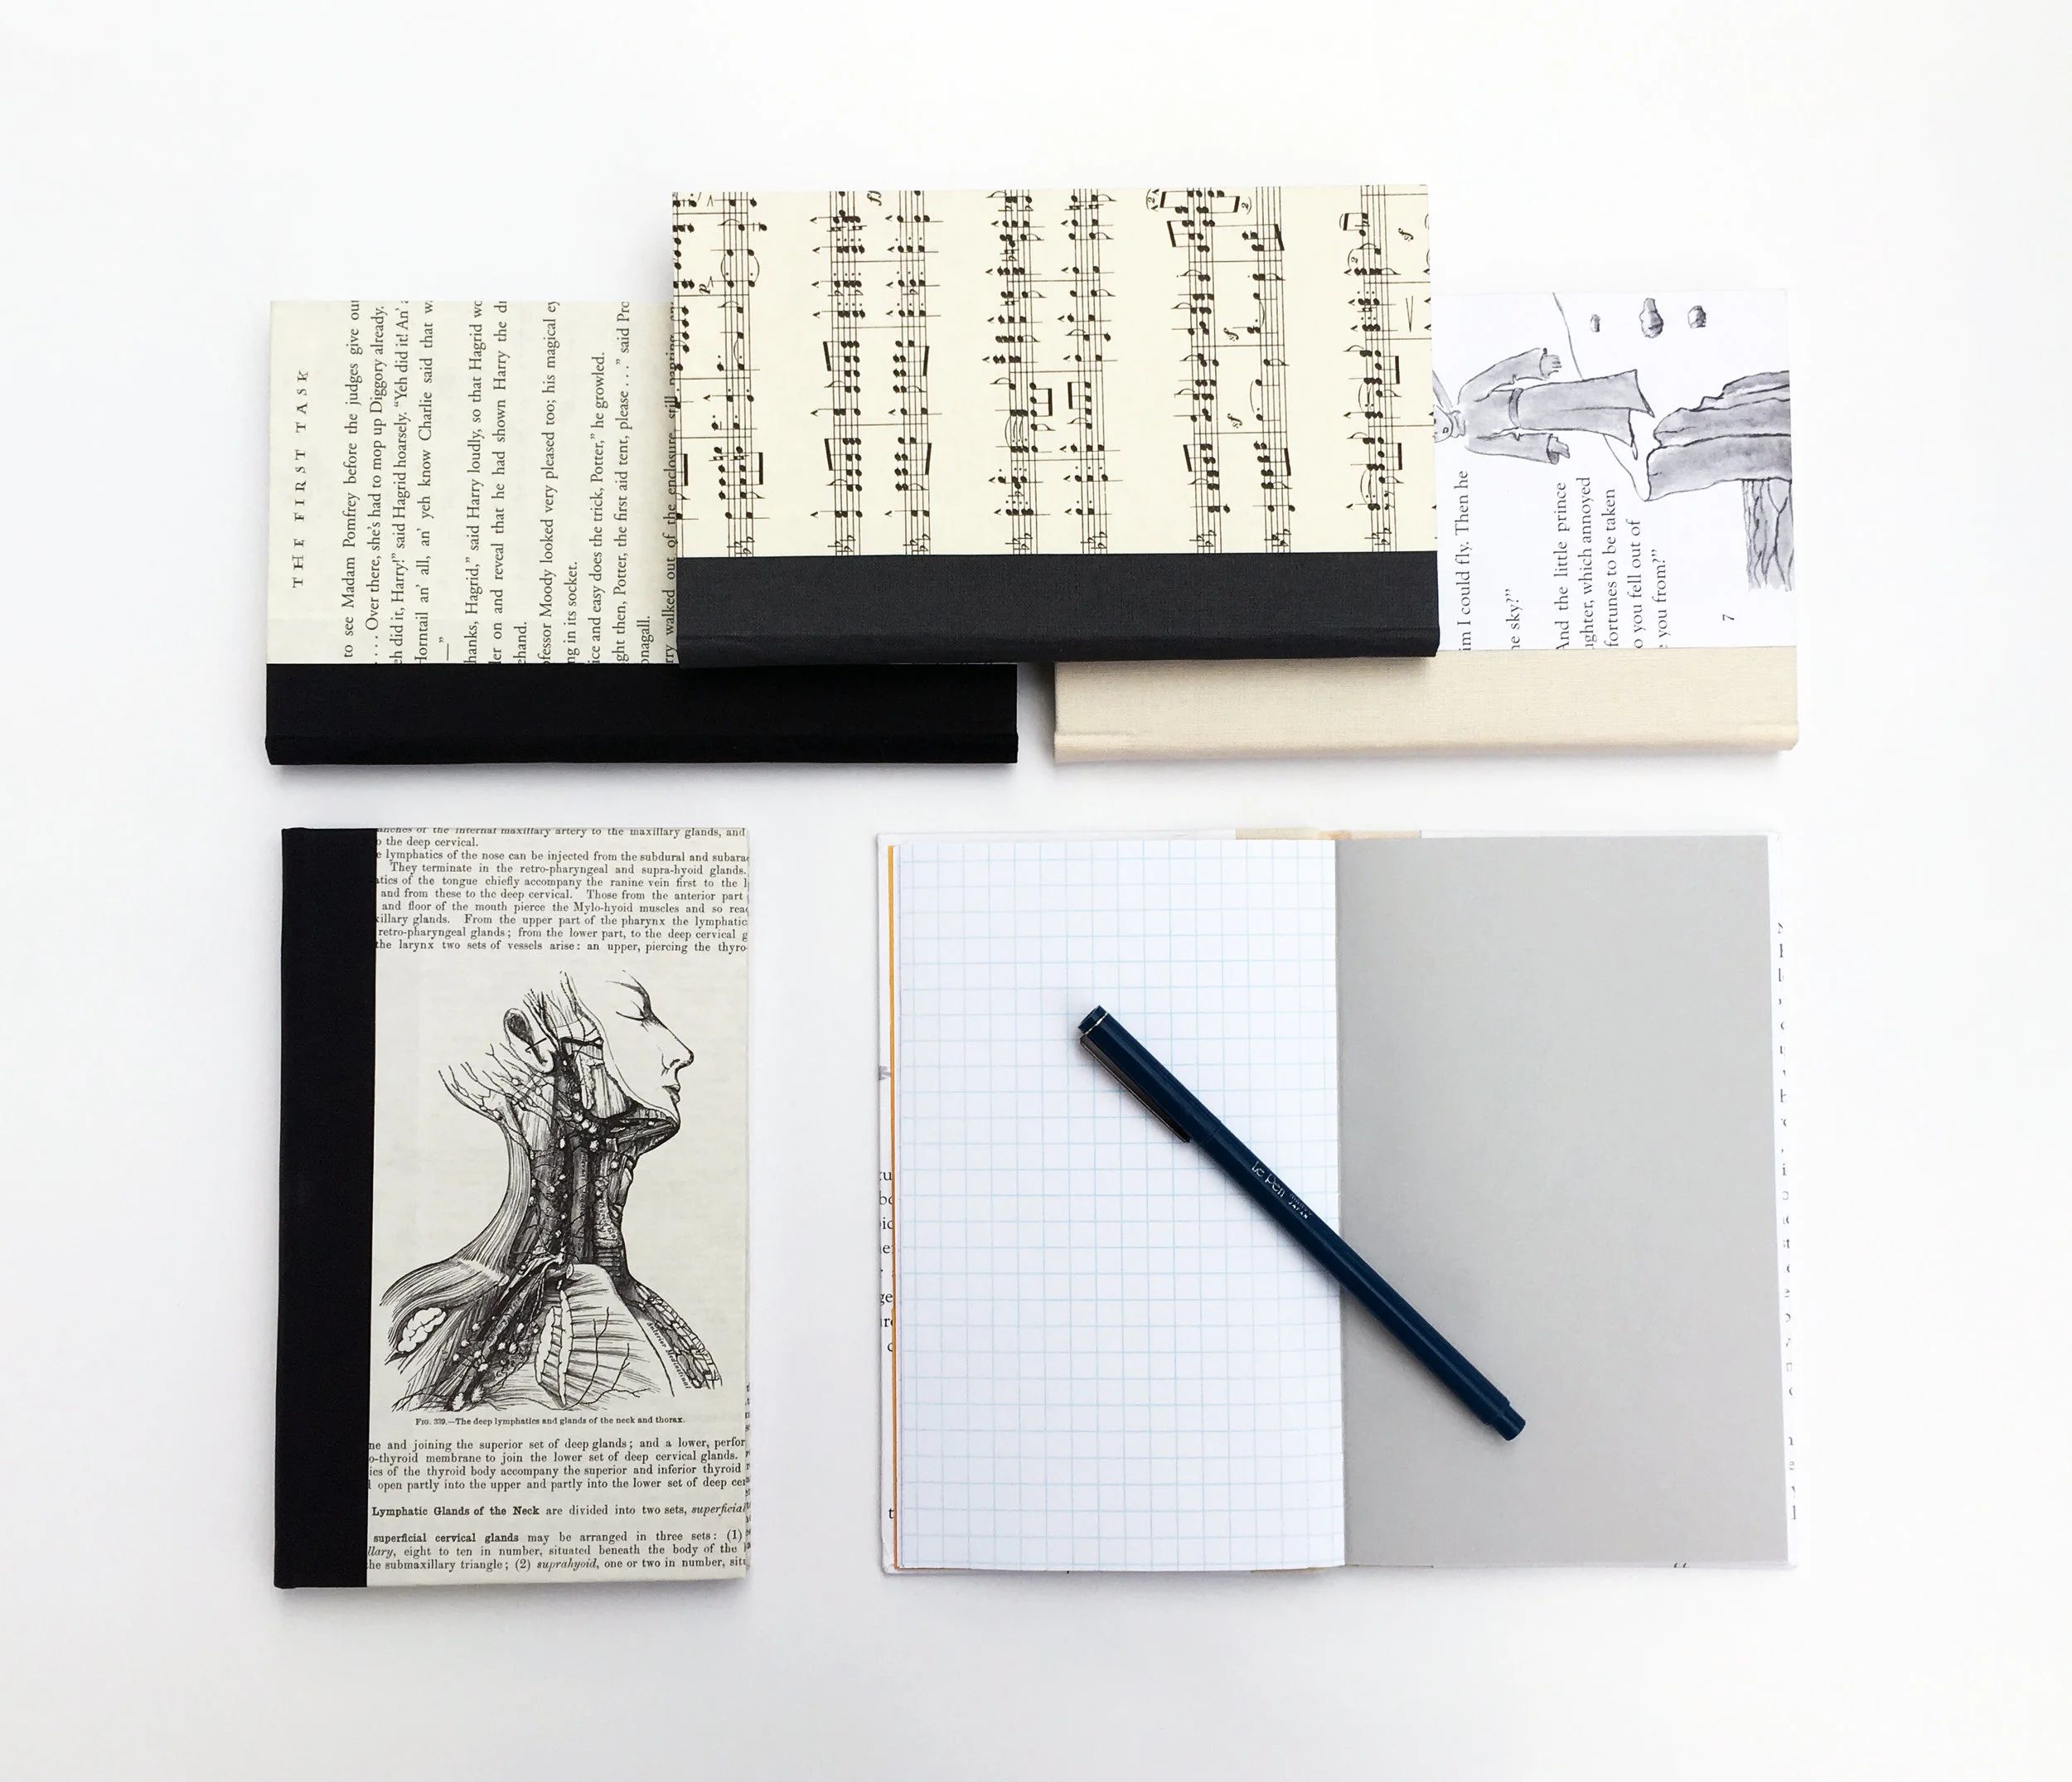 THE FIRST TASK
to see Madam Pomfrey before the judges give out
. . . . Over there, she's had to mop up Diggory already.
did it, Harry!" said Hagrid hoarsely. "Yeh did it! An'
Horntail an' all, an' yeh know Charlie said that
—"
hanks, Hagrid," said Harry loudly, so that Hagrid wo
ler on and reveal that he had shown Harry the dr
ehand.
ofessor Moody looked very pleased too; his magical ey
ng in its socket.
ice and easy does the trick, Potter," he growled.
ght then, Potter, the first aid tent, please . . ." said Pro
onagall.
rry walked out of the enclosure, still panting,
p
ff
sf
sf
sf
im I could fly. Then he
he sky?"
And the little prince
ughter, which annoyed
fortunes to be taken
o you fell out of
e you from?"
7
anches of the internal maxillary artery to the maxillary glands, and
o the deep cervical.
e lymphatics of the nose can be injected from the subdural and subara
They terminate in the retro-pharyngeal and supra-hyoid glands.
atics of the tongue chiefly accompany the ranine vein first to the
and from these to the deep cervical. Those from the anterior part
and floor of the mouth pierce the Mylo-hyoid muscles and so rea
xillary glands. From the upper part of the pharynx the lymphatic
retro-pharyngeal glands; from the lower part, to the deep cervical g
the larynx two sets of vessels arise: an upper, piercing the thyro-
Anterior Mediastinal
FIG. 339.—The deep lymphatics and glands of the neck and thorax.
ne and joining the superior set of deep glands; and a lower, perfor
o-thyroid membrane to join the lower set of deep cervical glands.
ics of the thyroid body accompany the superior and inferior thyroid
open partly into the upper and partly into the lower set of deep cer
Lymphatic Glands of the Neck are divided into two sets, superficial
superficial cervical glands may be arranged in three sets: (1)
illary, eight to ten in number, situated beneath the body of the
he submaxillary triangle; (2) suprahyoid, one or two in number, situ
Le Pen
JAPAN